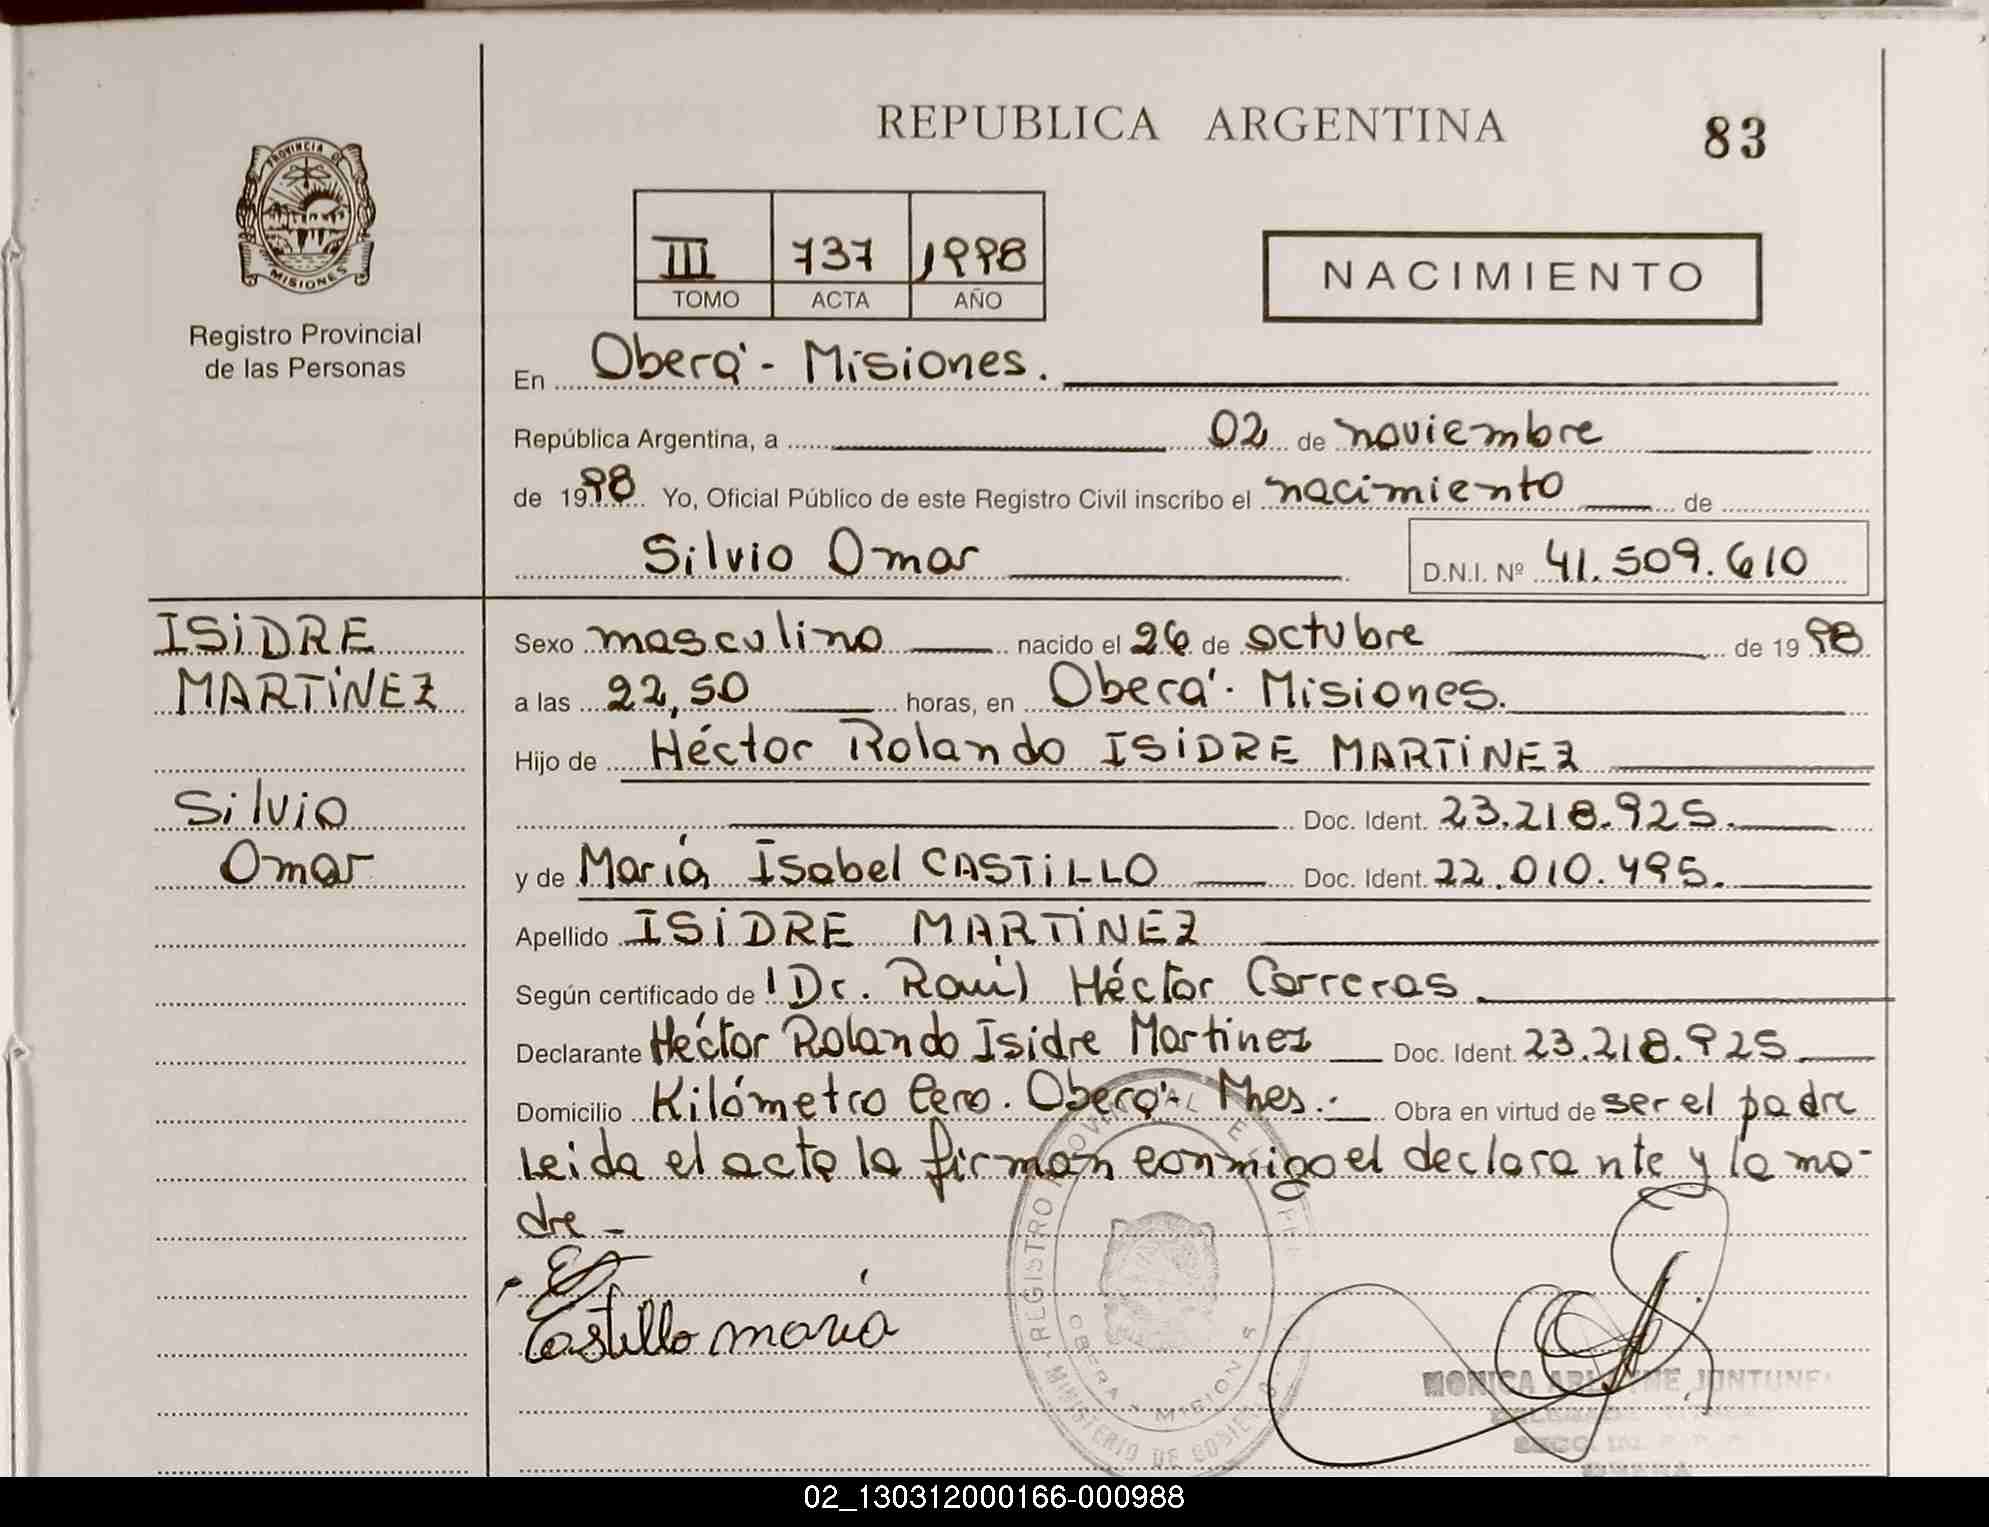 REPUBLICA ARGENTINA
83
PROVINCIA DE
MISIONES
Registro Provincial
de las Personas
III 737 1998
TOMO ACTA AÑO
NACIMIENTO
En Oberá - Misiones.
República Argentina, a 02 de noviembre
de 1998 Yo, Oficial Público de este Registro Civil inscribo el nacimiento de
Silvio Omar
D.N.I. Nº 41.509.610
ISIDRE
MARTINEZ
Silvio
Omar
Sexo masculino nacido el 26 de octubre de 1998
a las 22,50 horas, en Oberá - Misiones.
Hijo de Héctor Rolando ISIDRE MARTINEZ
Doc. Ident. 23.218.925.
y de María Isabel CASTILLO Doc. Ident. 22.010.495.
Apellido ISIDRE MARTINEZ
Según certificado de Dr. Raúl Héctor Correras
Declarante Héctor Rolando Isidre Martinez Doc. Ident. 23.218.925
Domicilio Kilómetro Cero. Oberá - Mnes.- Obra en virtud de ser el padre
Leida el acta la firman conmigo el declarante y la ma-
dre -
Castillo maria
REGISTRO PROVINCIAL DE
OBERA - MISIONES
MINISTERIO DE GOBIERNO
MONICA
OBERA
02_130312000166-000988